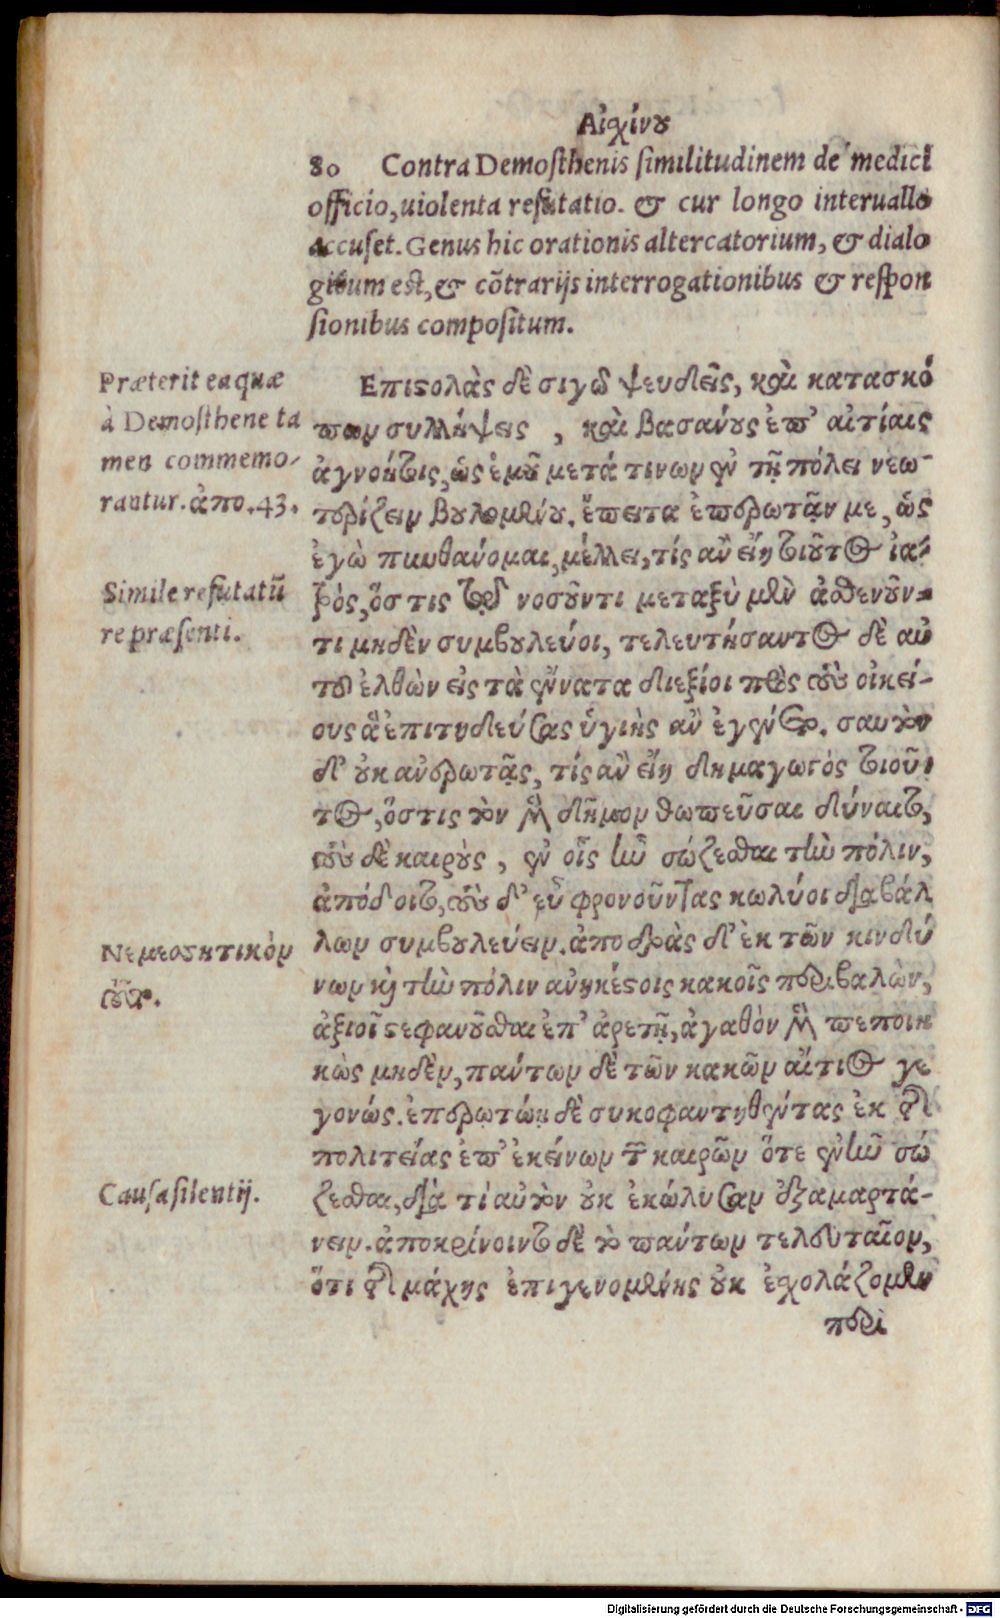 Αἰσχίνου
80 Contra Demosthenis similitudinem de medici
officio, uiolenta refutatio. & cur longo interuallo
accuset. Genus hic orationis altercatorium, & dialo
gicum est, & cōtrarijs interrogationibus & respon
sionibus compositum.
Præterit ea quæ
à Demosthene ta
men commemo-
rantur. ἀπο. 43.
Simile refutatū
repræsenti.
Νεμεσητικὸν
Causa silentij.
Επιστολὰς δὲ σιγῶ ψευδεῖς, καὶ κατασκό
πων συλλήψεις, καὶ βασάνους ἐπ' αἰτίαις
ἀγνοήτοις, ὡς ἐμοῦ μετά τινων ἐν τῇ πόλει νεω-
τερίζειν βουλομένου. ἔπειτα ἐπερωτᾷν με, ὡς
ἐγὼ πυνθάνομαι, μέλλει, τίς ἂν εἴη τοιοῦτος ἰα-
τρὸς, ὅστις τῷ νοσοῦντι μεταξὺ μὲν ἀσθενοῦν-
τι μηδὲν συμβουλεύοι, τελευτήσαντος δὲ αὐ
τοῦ ἐλθὼν εἰς τὰ ἔννατα διεξίοι πρὸς τοὺς οἰκεί-
ους ἃ ἐπιτηδεύσας ὑγιὴς ἂν ἐγένετο. σαυτὸν
δ' οὐκ ἀνερωτᾷς, τίς ἂν εἴη δημαγωγὸς τοιοῦ-
τος, ὅστις τὸν μὲν δῆμον θωπεῦσαι δύναιτο,
τοὺς δὲ καιροὺς, ἐν οἷς ἦν σώζεσθαι τὴν πόλιν,
ἀπόδοιτο, τοὺς δ' εὖ φρονοῦντας κωλύοι διαβάλ
λων συμβουλεύειν. ἀποδρὰς δ' ἐκ τῶν κινδύ
νων καὶ τὴν πόλιν ἀνηκέστοις κακοῖς περιβαλὼν,
ἀξιοῖ στεφανοῦσθαι ἐπ' ἀρετῇ, ἀγαθὸν μὲν πεποιη
κὼς μηδὲν, πάντων δὲ τῶν κακῶν αἴτιος γε
γονώς. ἐπερωτῴη δὲ συκοφαντηθέντας ἐκ τῆς
πολιτείας ἐπ' ἐκείνων τῶν καιρῶν ὅτε ἐνῆν σώ
ζεσθαι, διὰ τί αὐτὸν οὐκ ἐκώλυσαν ἐξαμαρτά-
νειν. ἀποκρίνοιντο δὲ τὸ πάντων τελευταῖον,
ὅτι τῆς μάχης ἐπιγενομένης οὐκ ἐσχολάζομεν
περὶ
Digitalisierung gefördert durch die Deutsche Forschungsgemeinschaft - DFG